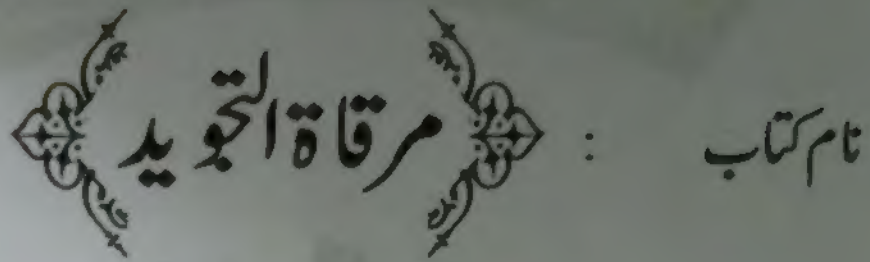 نام کتاب : مرقاۃ التجوید